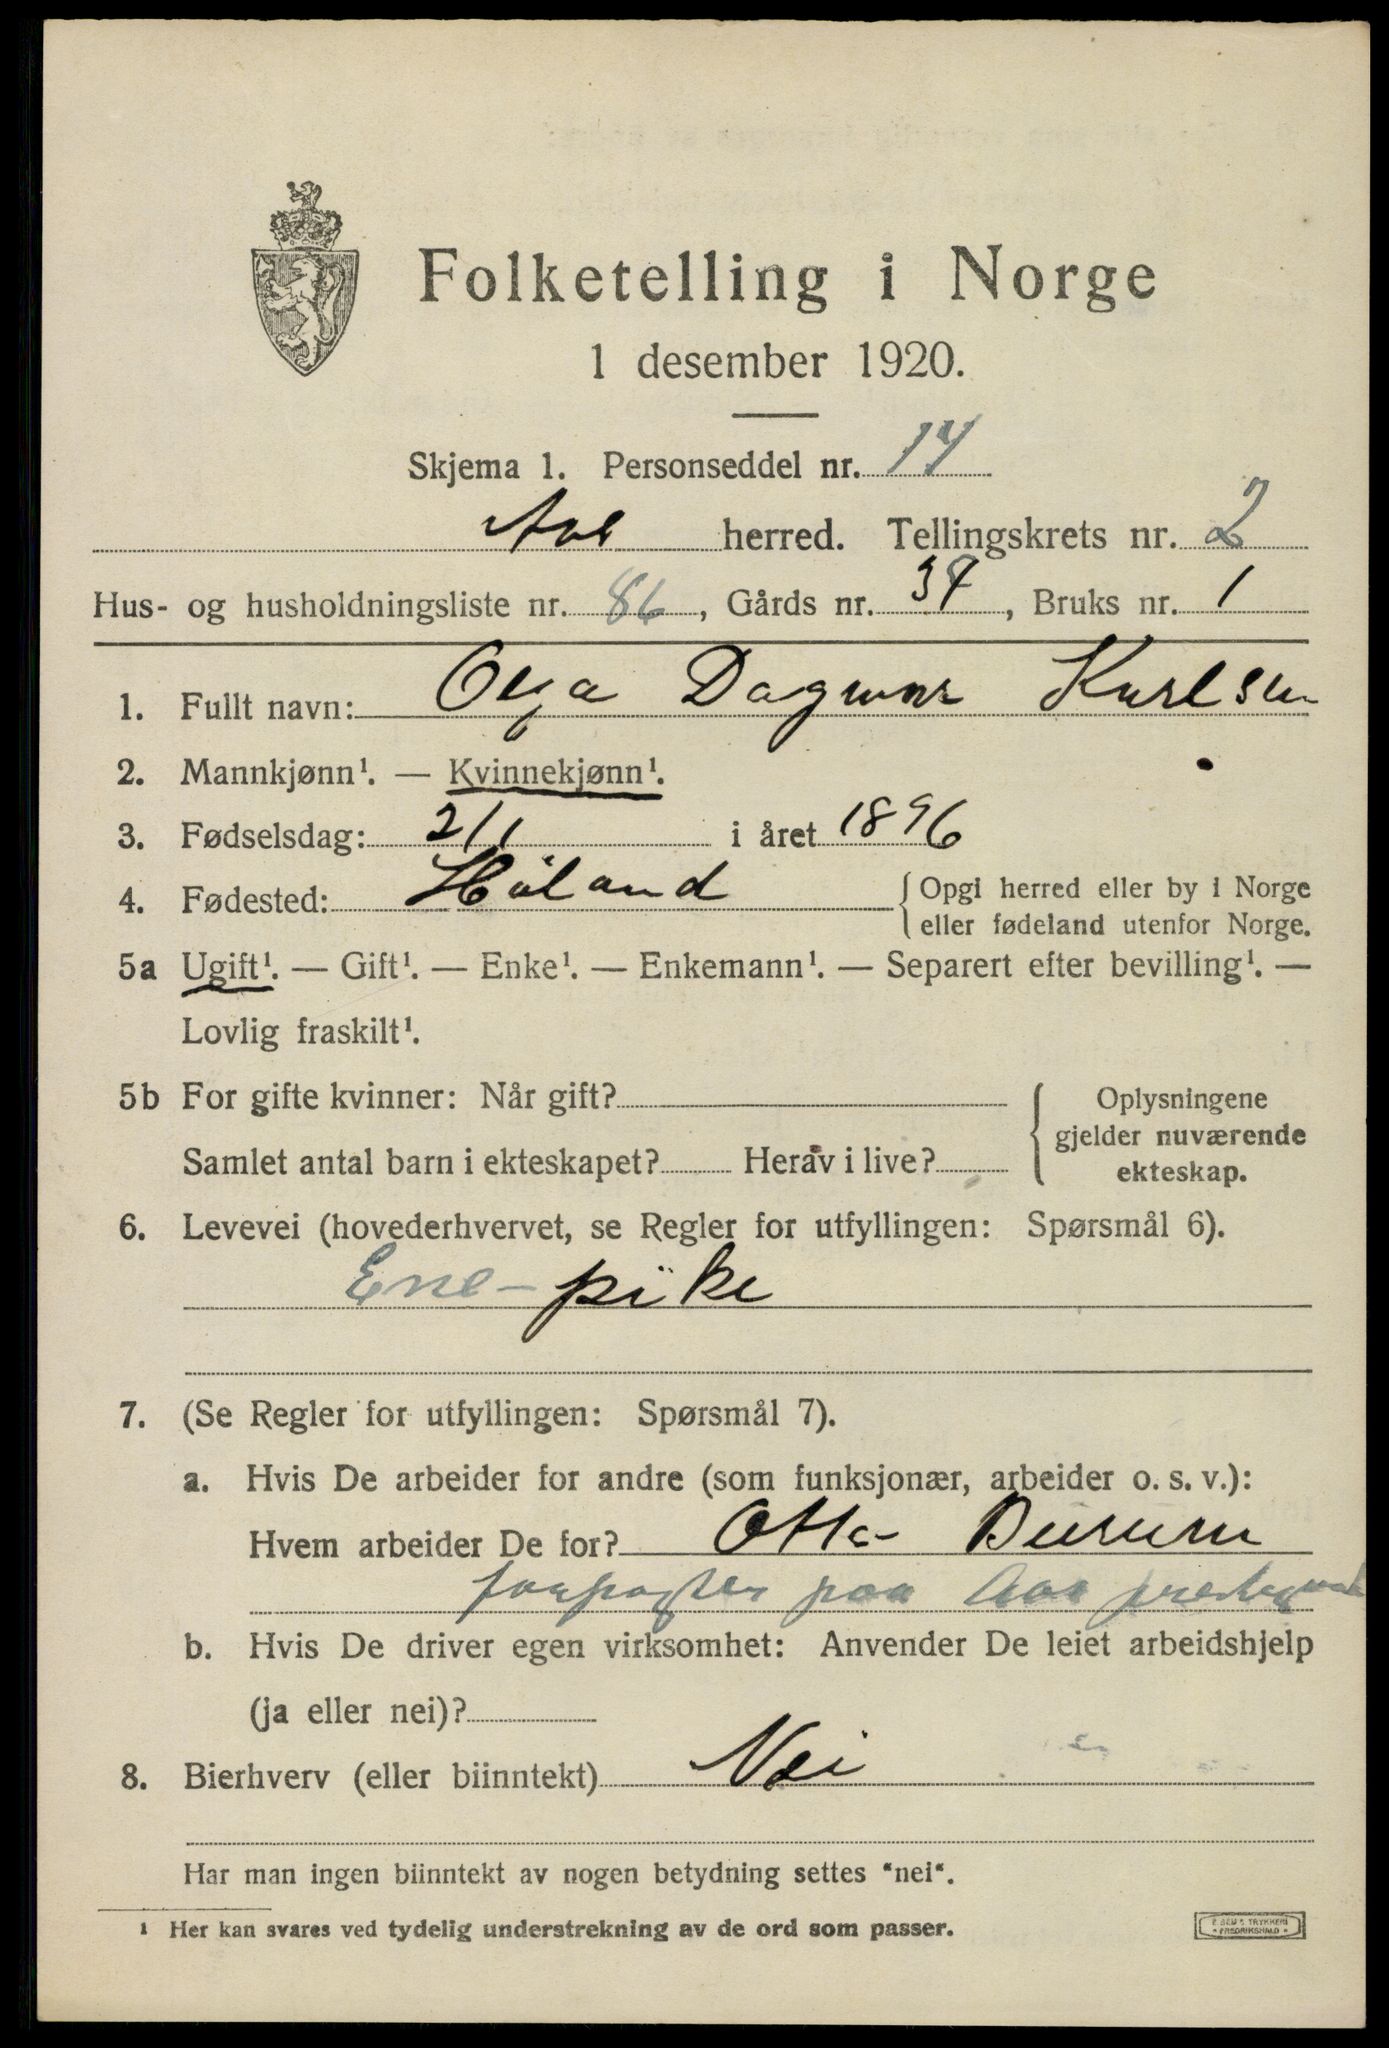 Folketelling i Norge
1 desember 1920.
Skjema 1. Personseddel nr. 14
herred. Tellingskrets nr. 2
Hus- og husholdningsliste nr. 86, Gårds nr. 37, Bruks nr. 1
1. Fullt navn: Olga Dagmar Karlsen
2. Mannkjønn¹. — Kvinnekjønn¹.
3. Fødselsdag: 2/1 i året 1896
4. Fødested: Høland
{ Opgi herred eller by i Norge
eller fødeland utenfor Norge.
5a Ugift¹. — Gift¹. — Enke¹. — Enkemann¹. — Separert efter bevilling¹. —
Lovlig fraskilt¹.
5b For gifte kvinner: Når gift?
Samlet antal barn i ekteskapet? Herav i live?
{ Oplysningene
gjelder nuværende
ekteskap.
6. Levevei (hovederhvervet, se Regler for utfyllingen: Spørsmål 6).
Ene-pike
7. (Se Regler for utfyllingen: Spørsmål 7).
a. Hvis De arbeider for andre (som funksjonær, arbeider o. s. v.):
Hvem arbeider De for? Otto
paa Aas
b. Hvis De driver egen virksomhet: Anvender De leiet arbeidshjelp
(ja eller nei)?
8. Bierhverv (eller biinntekt) Nei
Har man ingen biinntekt av nogen betydning settes "nei".
¹ Her kan svares ved tydelig understrekning av de ord som passer.
E. SEM'S TRYKKERI
FREDRIKSHALD